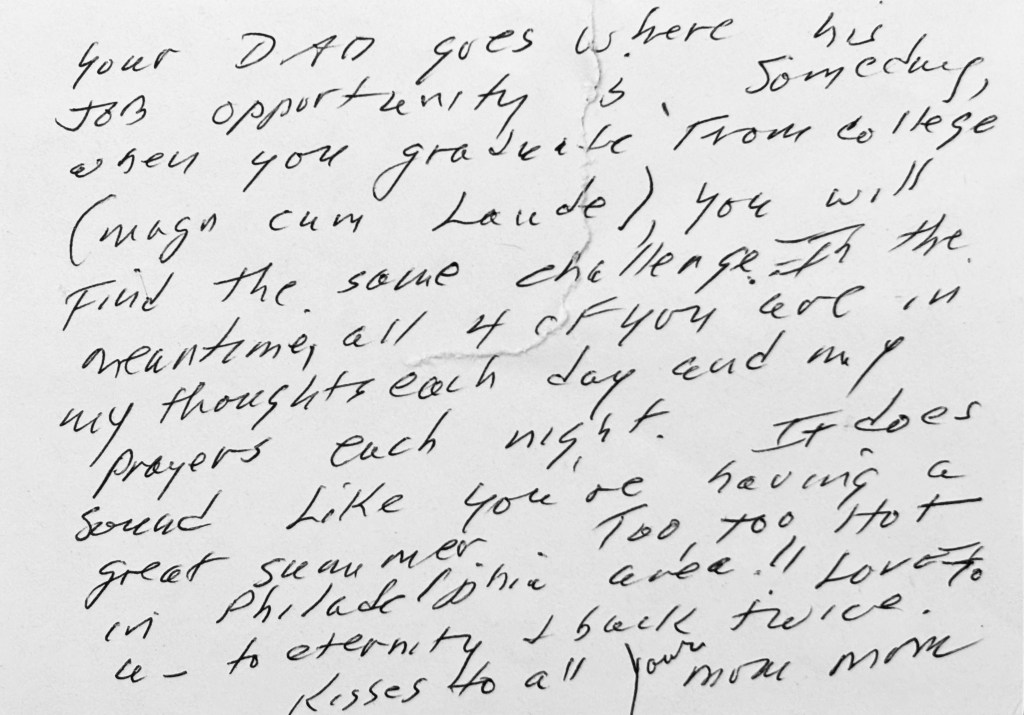 your DAD goes where his
JOB opportunity is. Someday,
when you graduate From college
(magn cum Laude), you will
Find the same challenge. In the
meantime, all 4 of you are in
my thoughts each day and my
prayers each night. It does
sound Like you're having a
great summer. Too, too Hot
in Philadelphia area!! Love to
u - to eternity & back twice.
Kisses to all your mom mom